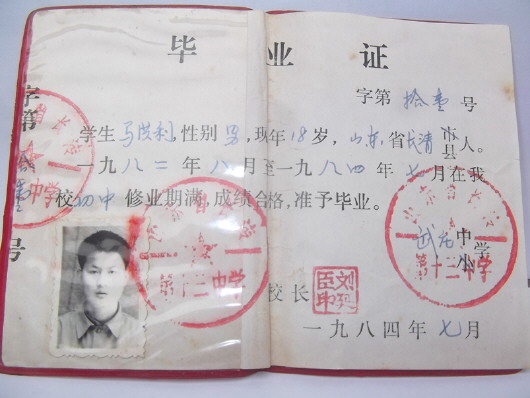 毕业证
字第拾壹号
学生马茂利,性别男,现年18岁,山东省长清市县人。
一九八二年八月至一九八四年七月在我
校初中修业期满,成绩合格,准予毕业。
中学
小
第十三中学
校长
一九八四年七月
字第
号
中学
第十三中学